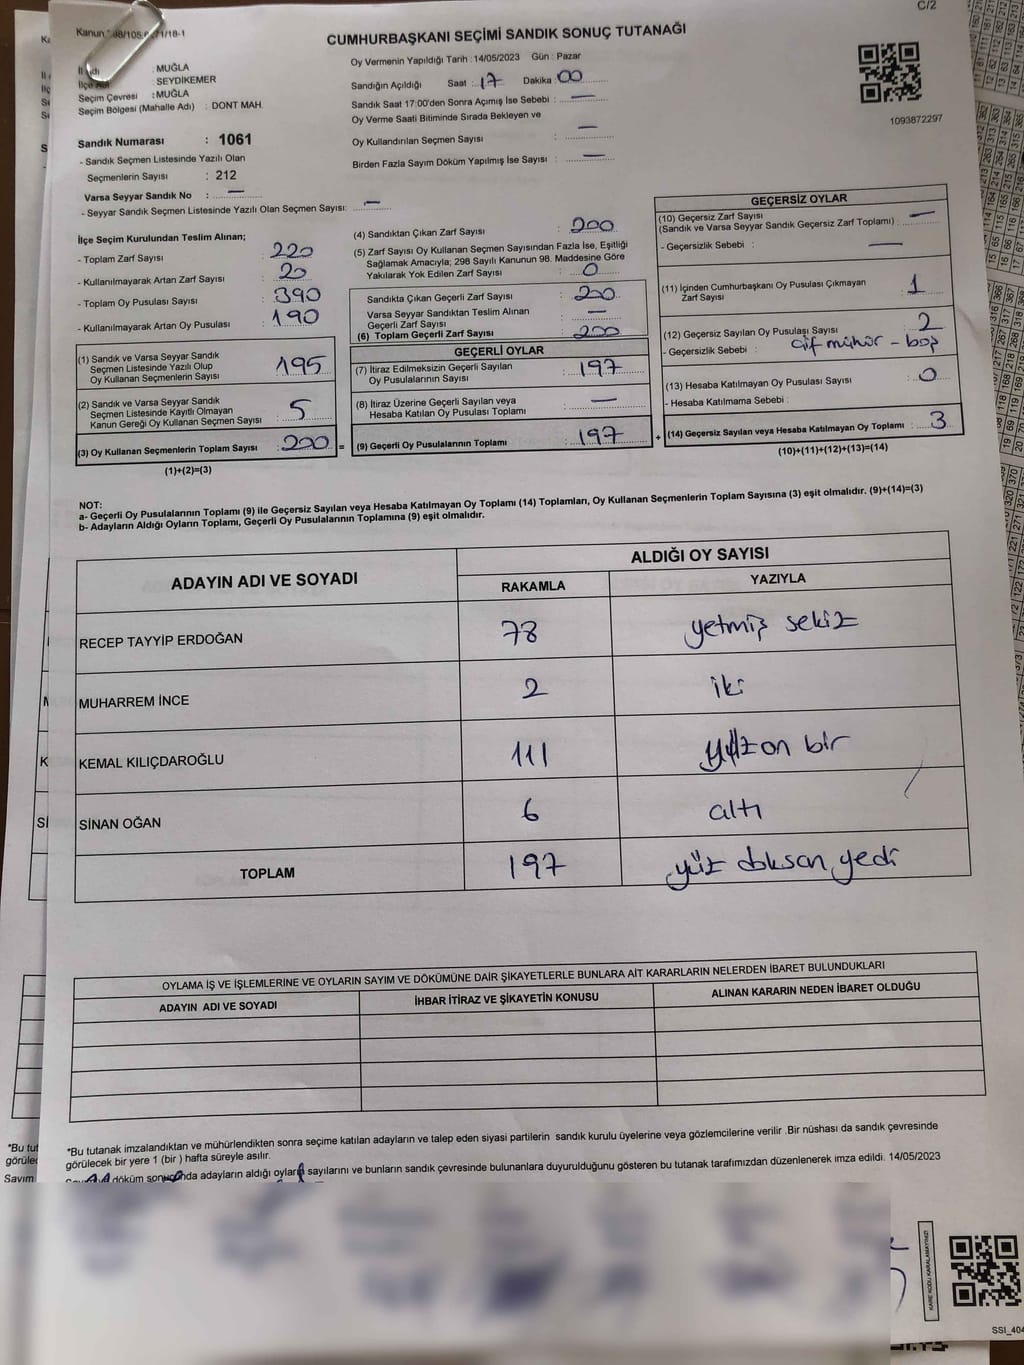 C/2
CUMHURBAŞKANI SEÇİMİ SANDIK SONUÇ TUTANAĞI
Kanun
/18-1
: MUĞLA
: SEYDİKEMER
Seçim Çevresi : MUĞLA
Seçim Bölgesi (Mahalle Adı) : DONT MAH.
Oy Vermenin Yapıldığı Tarih : 14/05/2023 Gün : Pazar
Sandığın Açıldığı Saat : 17 Dakika : 00
Sandık Saat 17:00'den Sonra Açımış İse Sebebi : —
Oy Verme Saati Bitiminde Sırada Bekleyen ve
Oy Kullandırılan Seçmen Sayısı : —
Birden Fazla Sayım Döküm Yapılmış İse Sayısı : —
1093872297
Sandık Numarası : 1061
- Sandık Seçmen Listesinde Yazılı Olan
Seçmenlerin Sayısı : 212
Varsa Seyyar Sandık No : —
- Seyyar Sandık Seçmen Listesinde Yazılı Olan Seçmen Sayısı: —
İlçe Seçim Kurulundan Teslim Alınan;
- Toplam Zarf Sayısı : 220
- Kullanılmayarak Artan Zarf Sayısı : 20
- Toplam Oy Pusulası Sayısı : 390
- Kullanılmayarak Artan Oy Pusulası : 190
(1) Sandık ve Varsa Seyyar Sandık
Seçmen Listesinde Yazılı Olup
Oy Kullanan Seçmenlerin Sayısı : 195
(2) Sandık ve Varsa Seyyar Sandık
Seçmen Listesinde Kayıtlı Olmayan
Kanun Gereği Oy Kullanan Seçmen Sayısı : 5
(3) Oy Kullanan Seçmenlerin Toplam Sayısı : 200 =
(1)+(2)=(3)
(4) Sandıktan Çıkan Zarf Sayısı : 200
(5) Zarf Sayısı Oy Kullanan Seçmen Sayısından Fazla İse, Eşitliği
Sağlamak Amacıyla; 298 Sayılı Kanunun 98. Maddesine Göre
Yakılarak Yok Edilen Zarf Sayısı : 0
Sandıkta Çıkan Geçerli Zarf Sayısı : 200
Varsa Seyyar Sandıktan Teslim Alınan
Geçerli Zarf Sayısı : —
(6) Toplam Geçerli Zarf Sayısı : 200
GEÇERLİ OYLAR
(7) İtiraz Edilmeksizin Geçerli Sayılan
Oy Pusulalarının Sayısı : 197
(8) İtiraz Üzerine Geçerli Sayılan veya
Hesaba Katılan Oy Pusulası Toplamı : —
(9) Geçerli Oy Pusulalarının Toplamı : 197 +
GEÇERSİZ OYLAR
(10) Geçersiz Zarf Sayısı
(Sandık ve Varsa Seyyar Sandık Geçersiz Zarf Toplamı) : —
- Geçersizlik Sebebi : —
(11) İçinden Cumhurbaşkanı Oy Pusulası Çıkmayan
Zarf Sayısı : 1
(12) Geçersiz Sayılan Oy Pusulası Sayısı : 2
- Geçersizlik Sebebi : çif mühür - boş
(13) Hesaba Katılmayan Oy Pusulası Sayısı : 0
- Hesaba Katılmama Sebebi :
(14) Geçersiz Sayılan veya Hesaba Katılmayan Oy Toplamı : 3
(10)+(11)+(12)+(13)=(14)
NOT:
a- Geçerli Oy Pusulalarının Toplamı (9) ile Geçersiz Sayılan veya Hesaba Katılmayan Oy Toplamı (14) Toplamları, Oy Kullanan Seçmenlerin Toplam Sayısına (3) eşit olmalıdır. (9)+(14)=(3)
b- Adayların Aldığı Oyların Toplamı, Geçerli Oy Pusulalarının Toplamına (9) eşit olmalıdır.
ADAYIN ADI VE SOYADI
ALDIĞI OY SAYISI
RAKAMLA YAZIYLA
RECEP TAYYİP ERDOĞAN 78 yetmiş sekiz
MUHARREM İNCE 2 iki
KEMAL KILIÇDAROĞLU 111 yüz on bir
SİNAN OĞAN 6 altı
TOPLAM 197 yüz doksan yedi
OYLAMA İŞ VE İŞLEMLERİNE VE OYLARIN SAYIM VE DÖKÜMÜNE DAİR ŞİKAYETLERLE BUNLARA AİT KARARLARIN NELERDEN İBARET BULUNDUKLARI
ADAYIN ADI VE SOYADI İHBAR İTİRAZ VE ŞİKAYETİN KONUSU ALINAN KARARIN NEDEN İBARET OLDUĞU
*Bu tutanak imzalandıktan ve mühürlendikten sonra seçime katılan adayların ve talep eden siyasi partilerin sandık kurulu üyelerine veya gözlemcilerine verilir .Bir nüshası da sandık çevresinde
görülecek bir yere 1 (bir ) hafta süreyle asılır.
döküm sonucunda adayların aldığı oyların sayılarını ve bunların sandık çevresinde bulunanlara duyurulduğunu gösteren bu tutanak tarafımızdan düzenlenerek imza edildi. 14/05/2023
KARE KODU KARALAMAYINIZ!
SSI_404